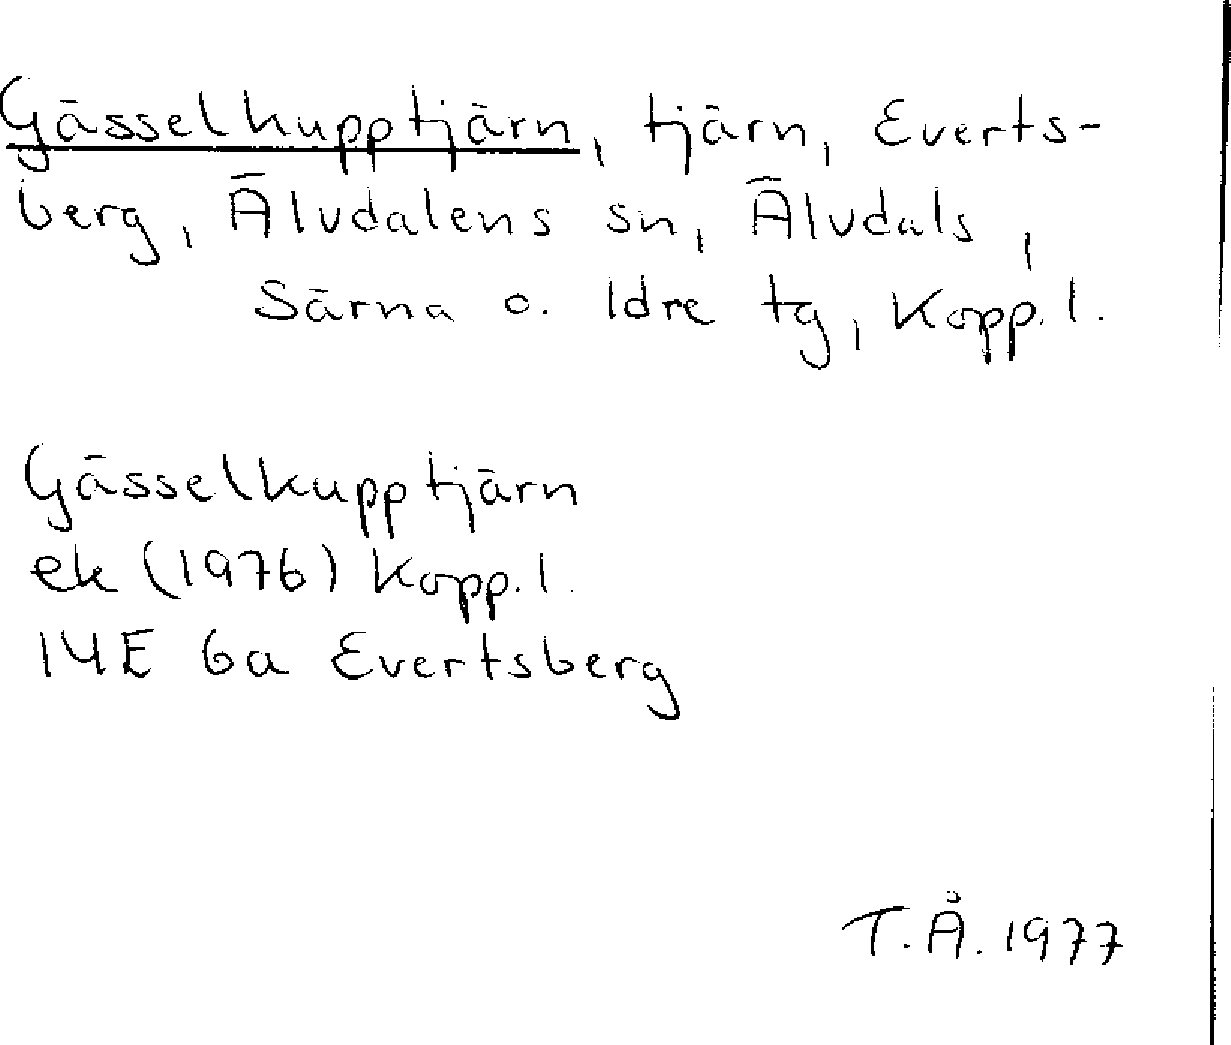 Gässelkupptjärn, tjärn, Everts-
berg, Älvdalens sn, Älvdals,
Särna o. Idre tg, Kopp. l.
Gässelkupptjärn
ek (1976) Kopp. l.
14E 6a Evertsberg
T.Å. 1977